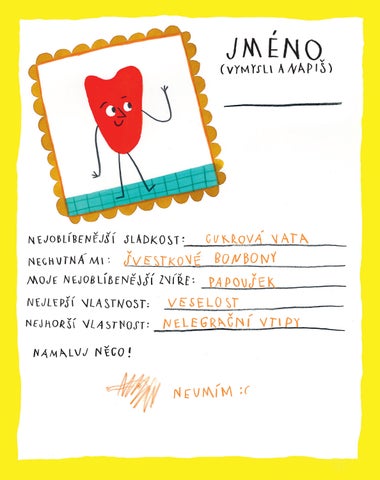 JMÉNO
(VYMYSLI A NAPIŠ)
NEJOBLÍBENĚJŠÍ SLADKOST: CUKROVÁ VATA
NECHUTNÁ MI: ŠVESTKOVÉ BONBONY
MOJE NEJOBLÍBENĚJŠÍ ZVÍŘE: PAPOUŠEK
NEJLEPŠÍ VLASTNOST: VESELOST
NEJHORŠÍ VLASTNOST: NELEGRAČNÍ VTIPY
NAMALUJ NĚCO!
NEUMÍM :(